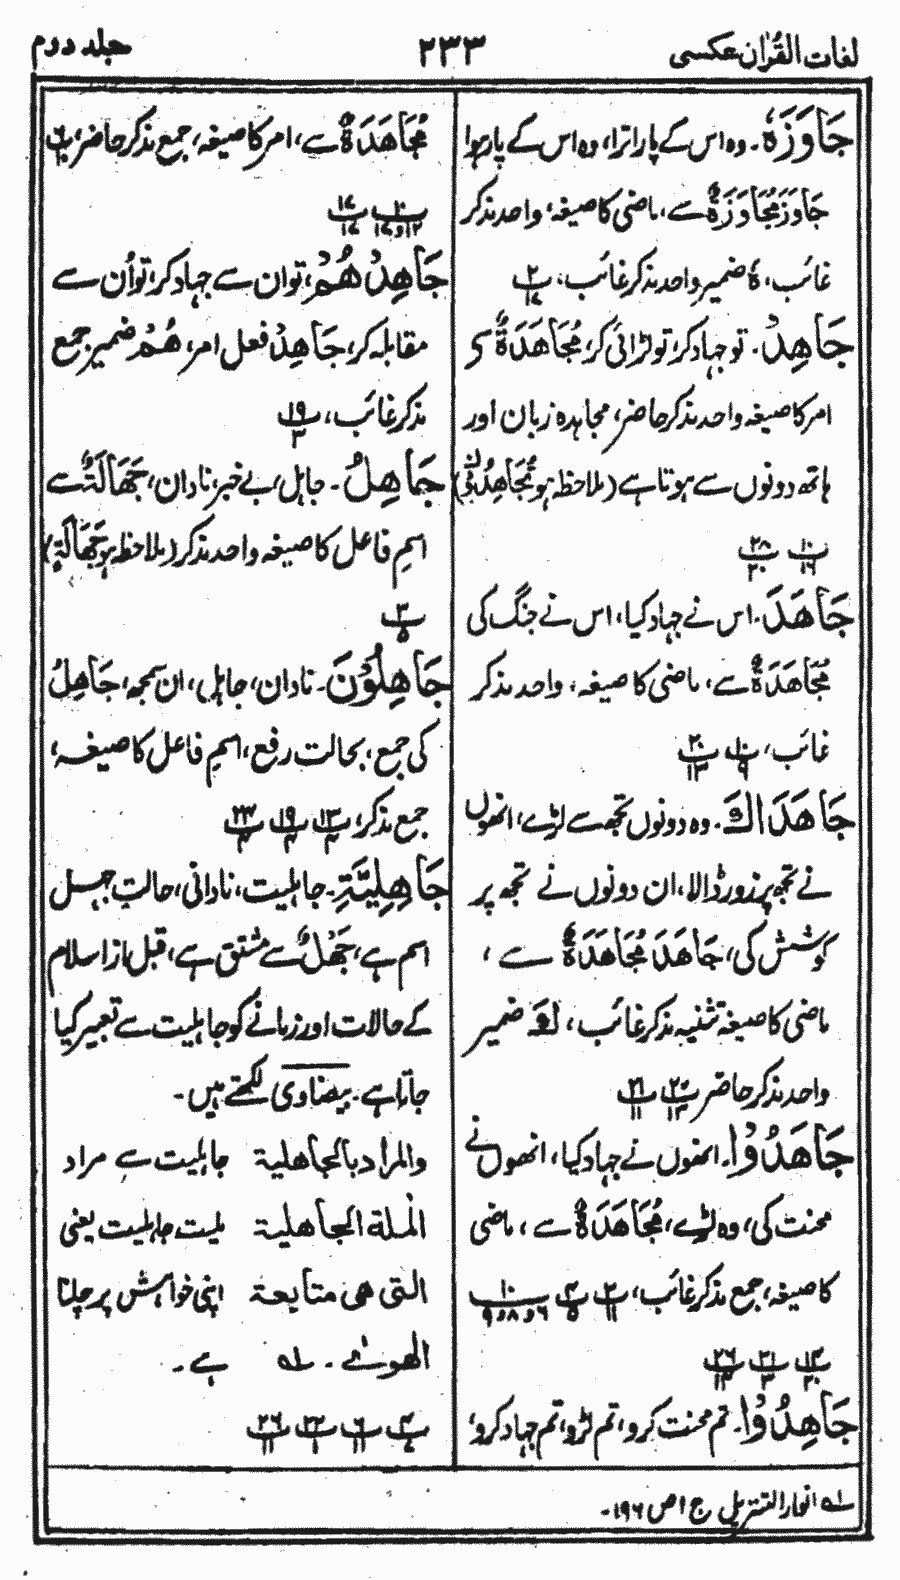 لغات القرآن عکسی
۲۳۳
جلد دوم
جَاوَزَہٗ۔ وہ اس کے پار اترا، وہ اس کے پار ہوا
جَاوَزَ مُجَاوَزَۃٌ سے، ماضی کا صیغہ، واحد مذکر
غائب، ہٗ ضمیر واحد مذکر غائب، پ ۲/۱۷
جَاھِدْ۔ تو جہاد کر، تو لڑائی کر، مُجَاھَدَۃٌ سے
امر کا صیغہ واحد مذکر حاضر، مجاہدہ زبان اور
ہاتھ دونوں سے ہوتا ہے (ملاحظہ ہو تُجَاھِدُوْنَ)
پ ۱۰/۱۶ پ ۲۸/۲۰
جَاھَدَ۔ اس نے جہاد کیا، اس نے جنگ کی
مُجَاھَدَۃٌ سے، ماضی کا صیغہ، واحد مذکر
غائب، پ ۱۰/۹ پ ۲۰/۱۳
جَاھَدَاکَ۔ وہ دونوں تجھ سے لڑے، انھوں
نے تجھ پر زور ڈالا، ان دونوں نے تجھ پر
کوشش کی، جَاھَدَ مُجَاھَدَۃٌ سے،
ماضی کا صیغہ تثنیہ مذکر غائب، کَ ضمیر
واحد مذکر حاضر پ ۲۰/۱۳ پ ۲۱/۱۱
جَاھَدُوْا۔ انھوں نے جہاد کیا، انھوں نے
محنت کی، وہ لڑے، مُجَاھَدَۃٌ سے، ماضی
کا صیغہ، جمع مذکر غائب، پ ۲/۱۱ پ ۴/۵ پ ۱۰/۶ و ۸ و ۹
پ ۱۴/۲۰ پ ۲۱/۳ پ ۲۶/۱۴
جَاھِدُوْا۔ تم محنت کرو، تم لڑو، تم جہاد کرو،
مُجَاھَدَۃٌ سے، امر کا صیغہ، جمع مذکر حاضر، پ ۶/۱۰
پ ۱۰/۱۲ و ۱۶ پ ۱۷/۱۷
جَاھِدْ ھُمْ، تو ان سے جہاد کر، تو اُن سے
مقابلہ کر، جَاھِدْ فعل امر، ھُمْ ضمیر جمع
مذکر غائب، پ ۱۹/۳
جَاھِلُ۔ جاہل، بے خبر، نادان، جَھَالَۃٌ سے
اسم فاعل کا صیغہ واحد مذکر (ملاحظہ ہو جَھَالَۃٍ)
پ ۳/۵
جَاھِلُوْنَ۔ نادان، جاہل، ان سمجھ، جَاھِلُ
کی جمع، بحالت رفع، اسم فاعل کا صیغہ،
جمع مذکر، پ ۱۳/۴ پ ۱۹/۴ پ ۲۳/۴
جَاھِلِیَّۃِ۔ جاہلیت، نادانی، حالتِ جہل
اسم ہے، جَھْلٌ سے مشتق ہے، قبل از اسلام
کے حالات اور زمانے کو جاہلیت سے تعبیر کیا
جاتا ہے۔ بیضاوی لکھتے ہیں۔
والمراد بالجاھلیۃ جاہلیت سے مراد
الملۃ الجاھلیۃ ملت جاہلیت یعنی
التی ھی متابعۃ اپنی خواہش پر چلنا
الھویٰ۔ لہ ہے۔
پ ۴/۷ پ ۶/۱۱ پ ۲۲/۱ پ ۲۶/۱۱
لہ انوار التنزیل ج ۱ ص ۱۹۶۔